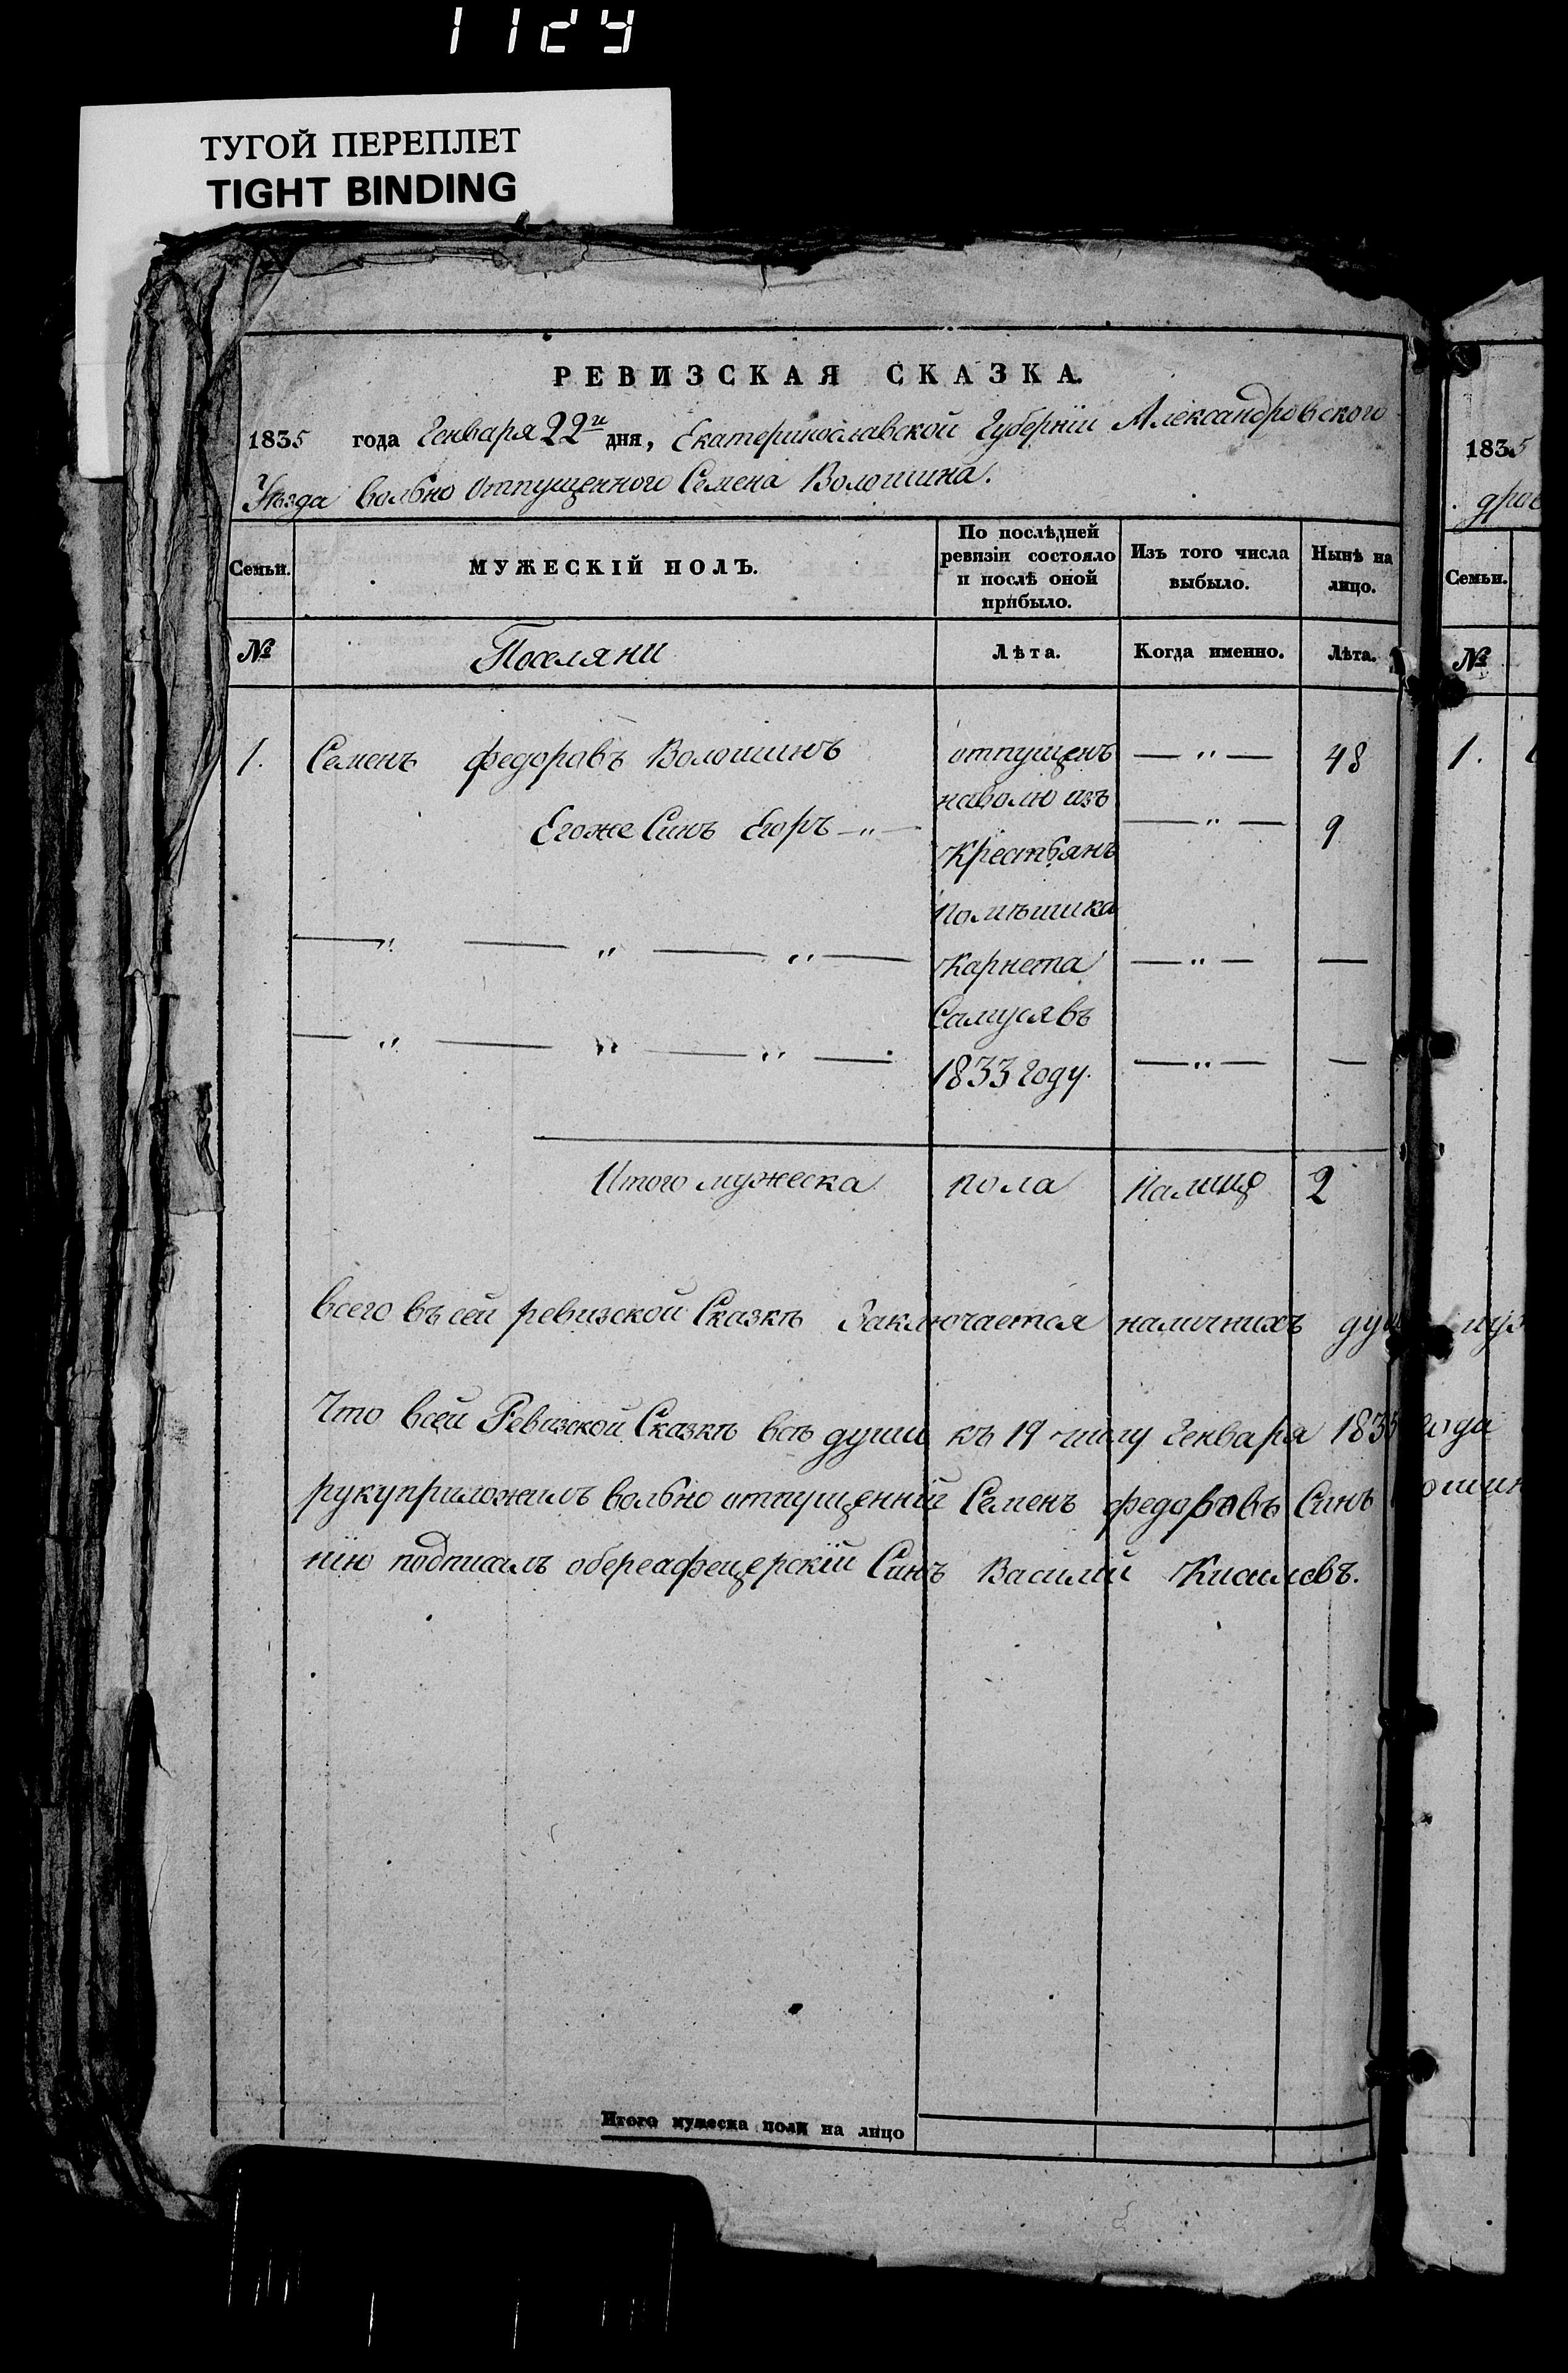 ТУГОЙ ПЕРЕПЛЕТ
TIGHT BINDING
РЕВИЗСКАЯ СКАЗКА.
1835 года Генваря 22го дня, Екатеринославской Губерніи Александровского
Уѣзда вольно отпущенного Семена Волошина.
Семьи.
МУЖЕСКІЙ ПОЛЪ.
По послѣдней
ревизіи состояло
и послѣ оной
прибыло.
Изъ того числа
выбыло.
Нынѣ на
лицо.
№
Поселяни
Лѣта.
Когда именно.
Лѣта.
1. Семенъ федоровъ Волошинъ отпущенъ — " — 48
наволю изъ
Егоже Синъ Егоръ — " — — " — 9
Крестьянъ
Помѣшика
— " — " — " — Карнета — " — —
Самуся въ
— " — " — " — 1833 году. — " — —
Итого мужеска пола Налицо 2
всего въ сей ревизской Сказкѣ Заключается наличнихъ душ
Что всей Ревизской Сказкѣ всѣ души къ 19 числу Генваря 1835 года
рукуприложилъ вольно отпущенній Семенъ федоровъ Синъ
нію подписалъ обереафецерскій Синъ Василій Кисилевъ.
Итого мужеска пола на лицо
1835
Семьи.
№
1.